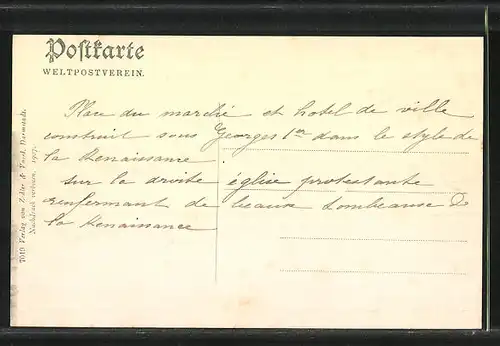 Postkarte
WELTPOSTVEREIN.
Place du marché et hotel de ville
construit sous Georges 1er dans le style de
la Renaissance.
sur la droite église protestante
renfermant de beaux tombeaux d
la Renaissance
7019 Verlag von Zedler & Vogel, Darmstadt.
Nachdruck verboten. 1907.